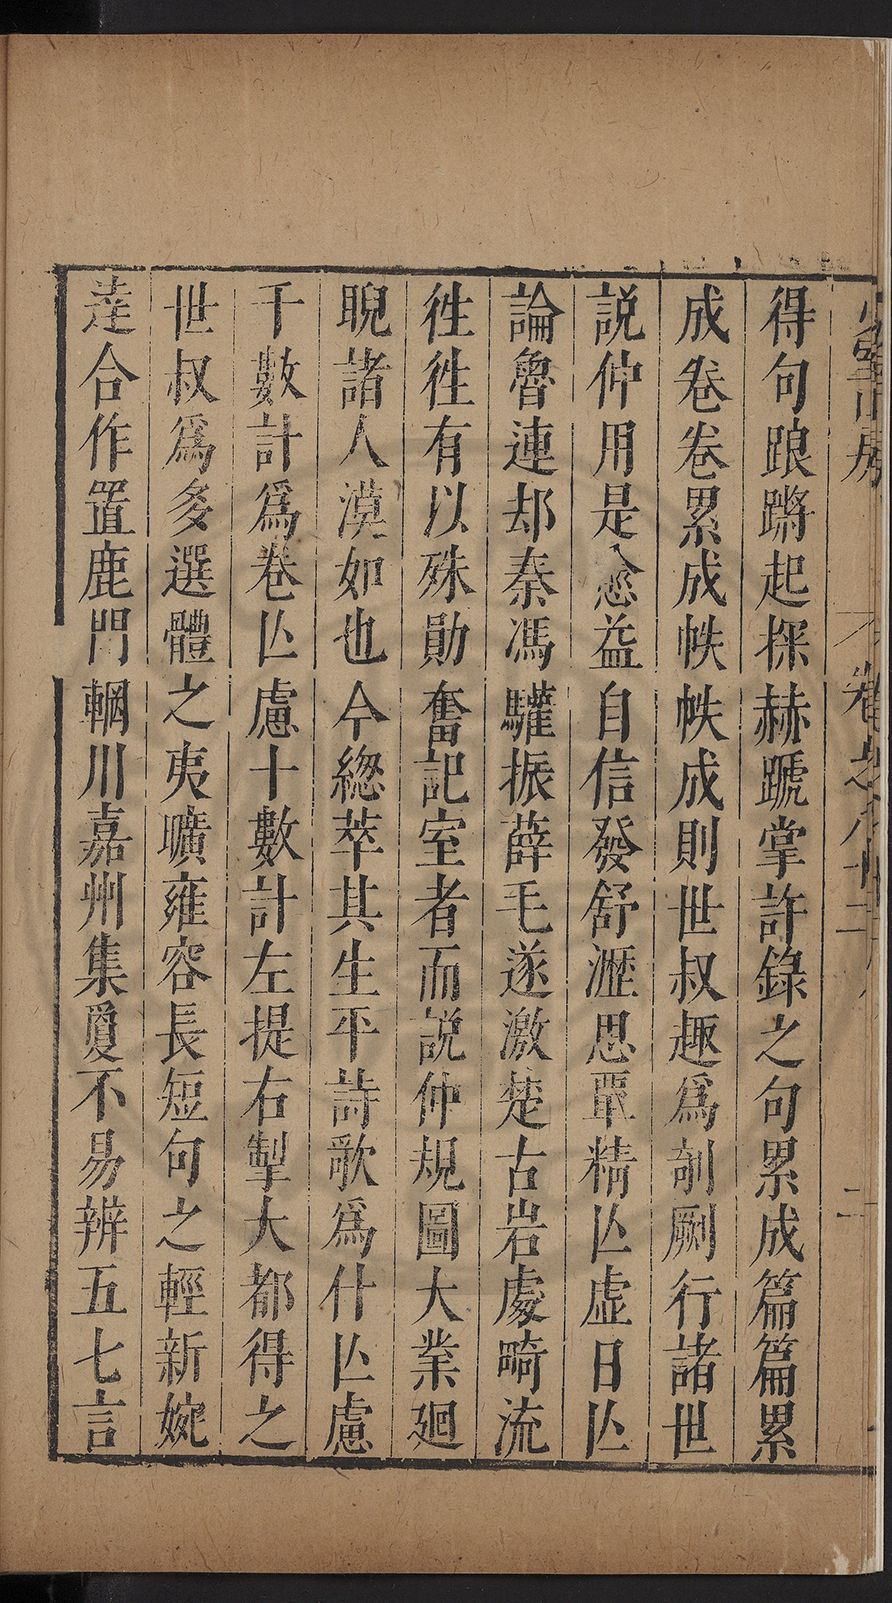 少室山房 卷之八十三 二
得句踉蹡起探赫蹏掌許錄之句累成篇篇累
成卷卷累成帙帙成則世叔趣爲剞劂行諸世
説仲用是愈益自信發舒瀝思覃精亾虛日亾
論魯連却秦馮驩振薛毛遂激楚古岩處畸流
徃徃有以殊勛奮記室者而説仲規圖大業廻
睨諸人漠如也今緫萃其生平詩歌爲什亾慮
千數計爲卷亾慮十數計左提右掣大都得之
世叔爲多選體之夷曠雍容長短句之輕新婉
逹合作置鹿門輞川嘉州集敻不易辨五七言